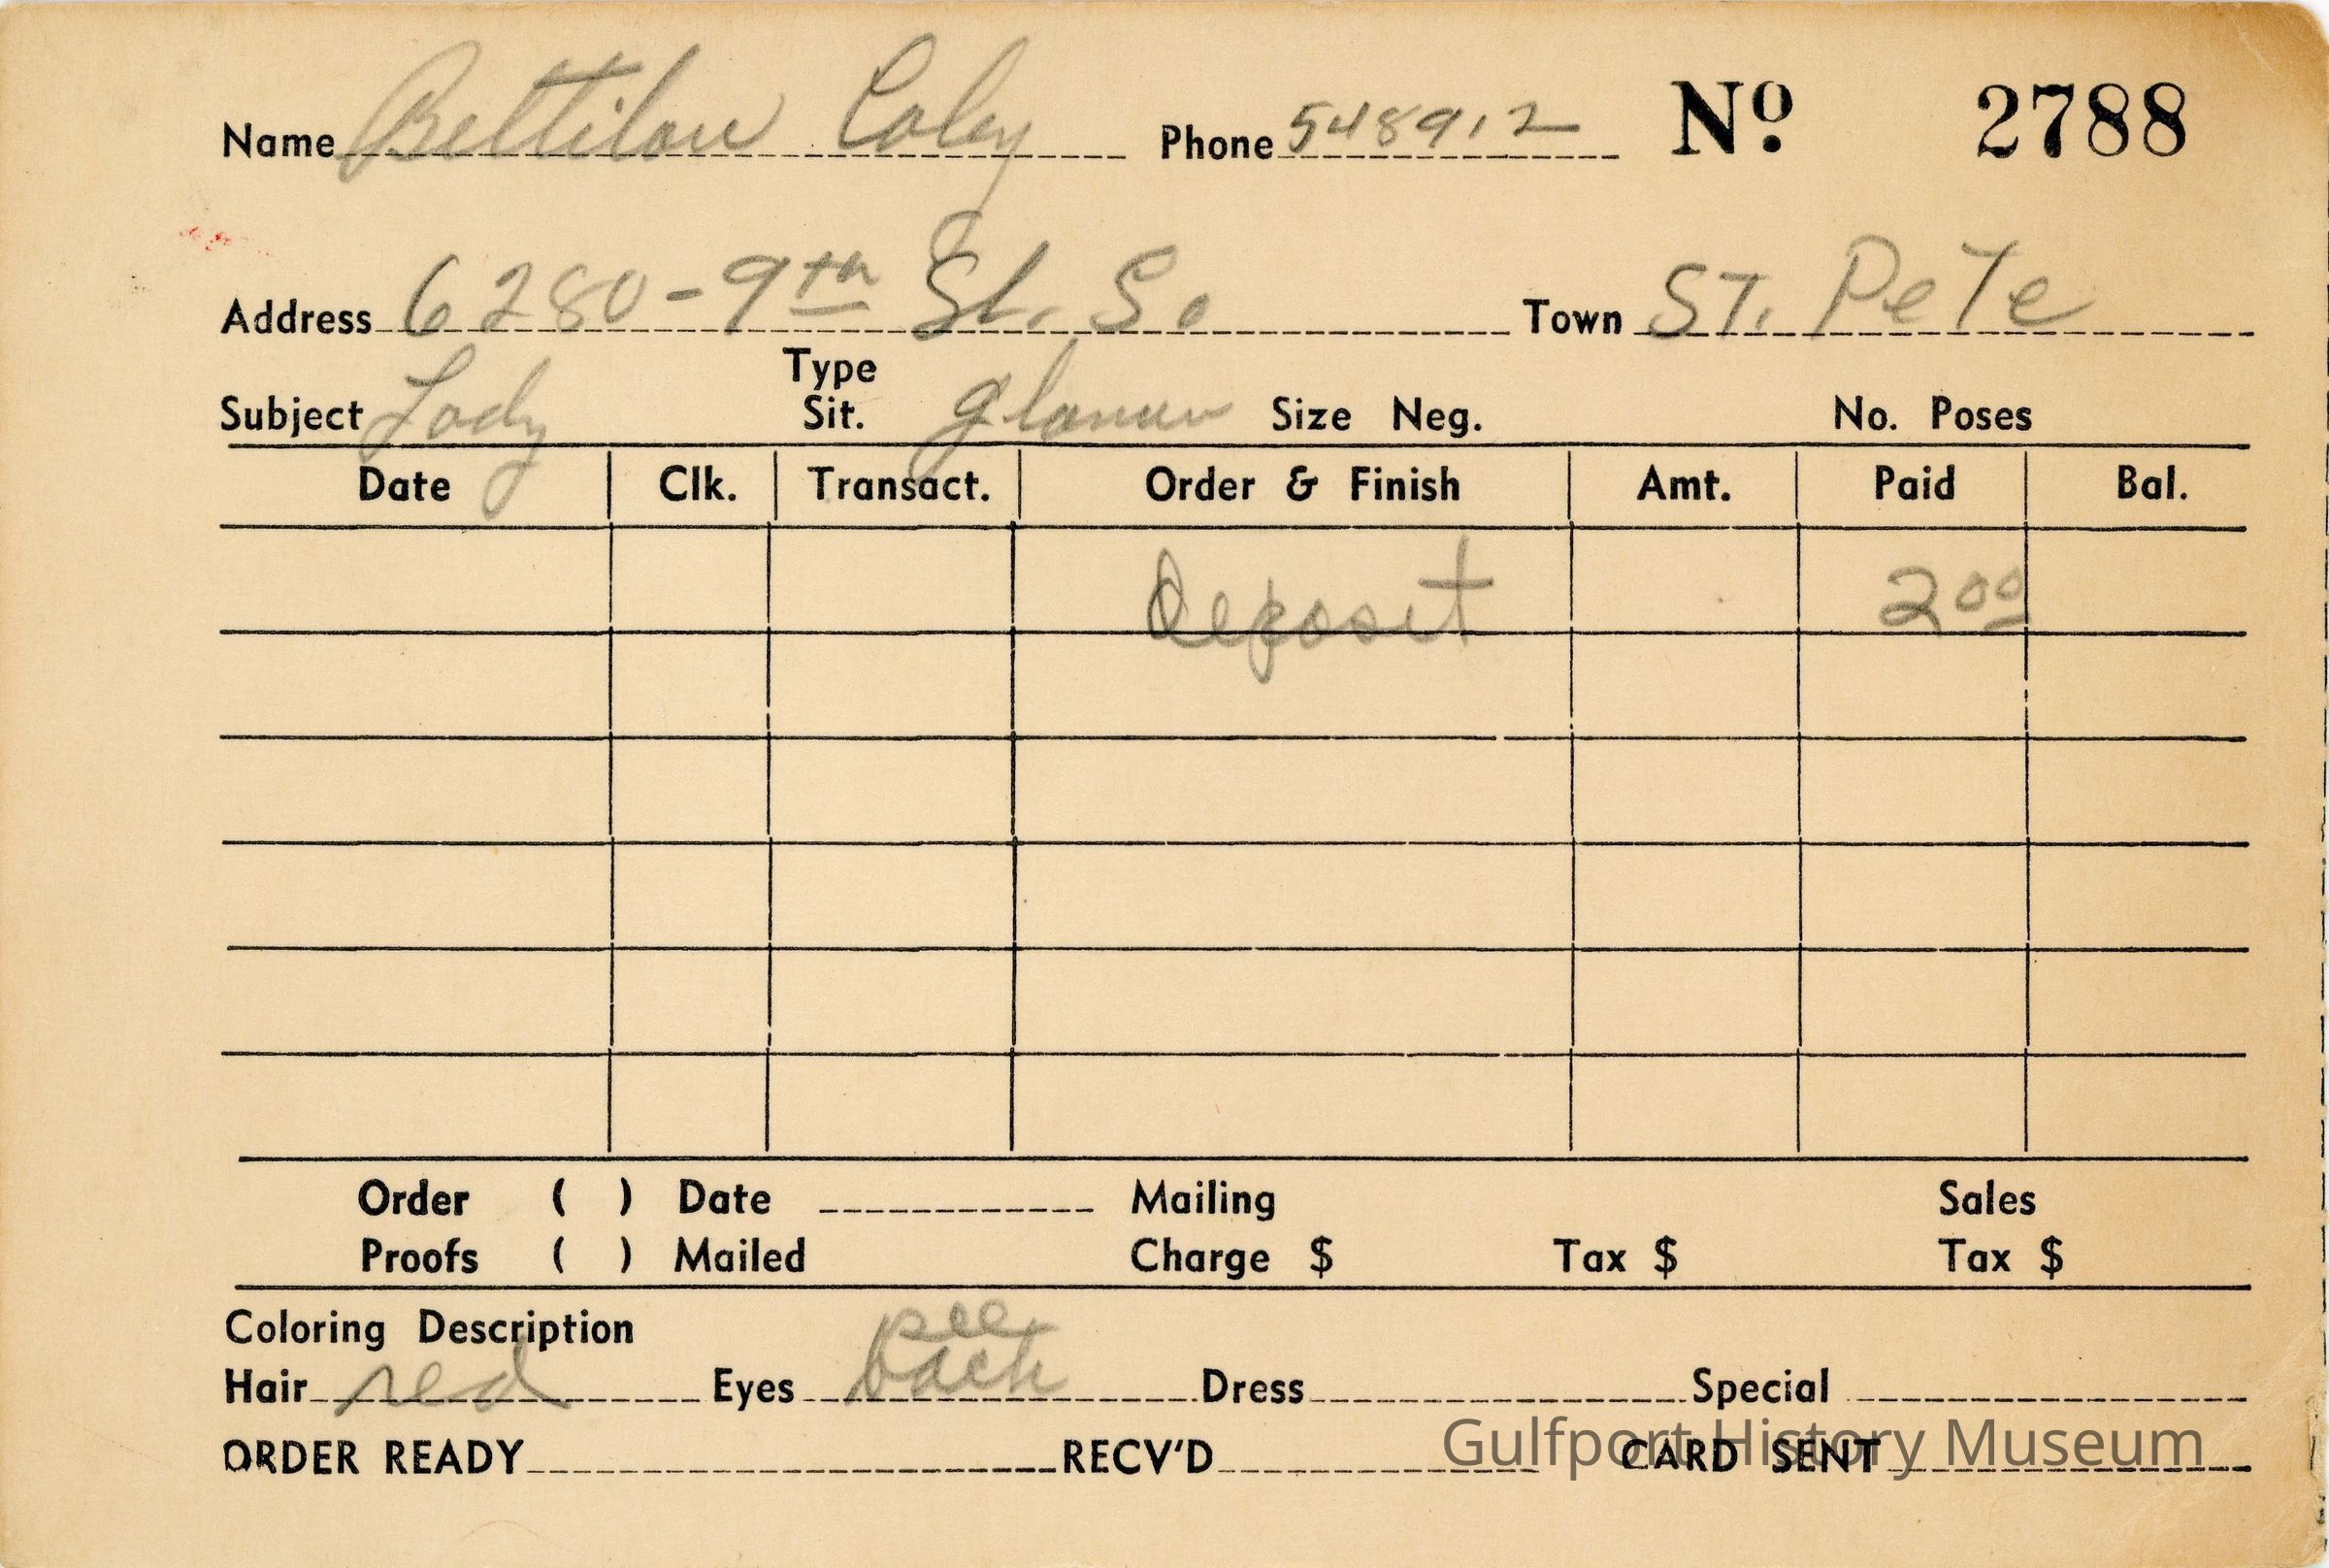 Name Bettilou Coley Phone 548912 Nº 2788
Address 6280-9th St. So Town ST. PeTe
Subject Lady Type Sit. glamour Size Neg. No. Poses
Date Clk. Transact. Order & Finish Amt. Paid Bal.
Deposit 2 00
Order ( ) Date Mailing Sales
Proofs ( ) Mailed Charge $ Tax $ Tax $
Coloring Description
Hair red Eyes see back Dress Special
ORDER READY RECV'D CARD SENT
Gulfport History Museum